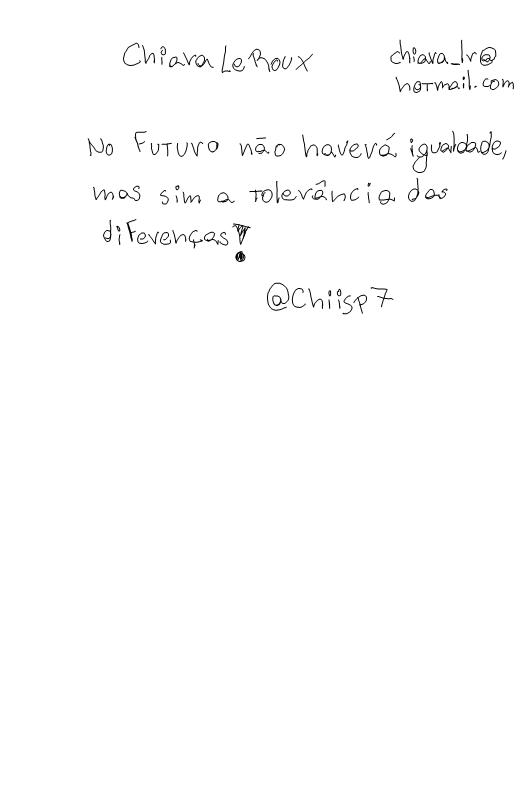 Chiara Le Roux
chiara_lr@
hotmail.com
No Futuro não haverá igualdade,
mas sim a tolerância das
diFerenças!
@Chiisp7